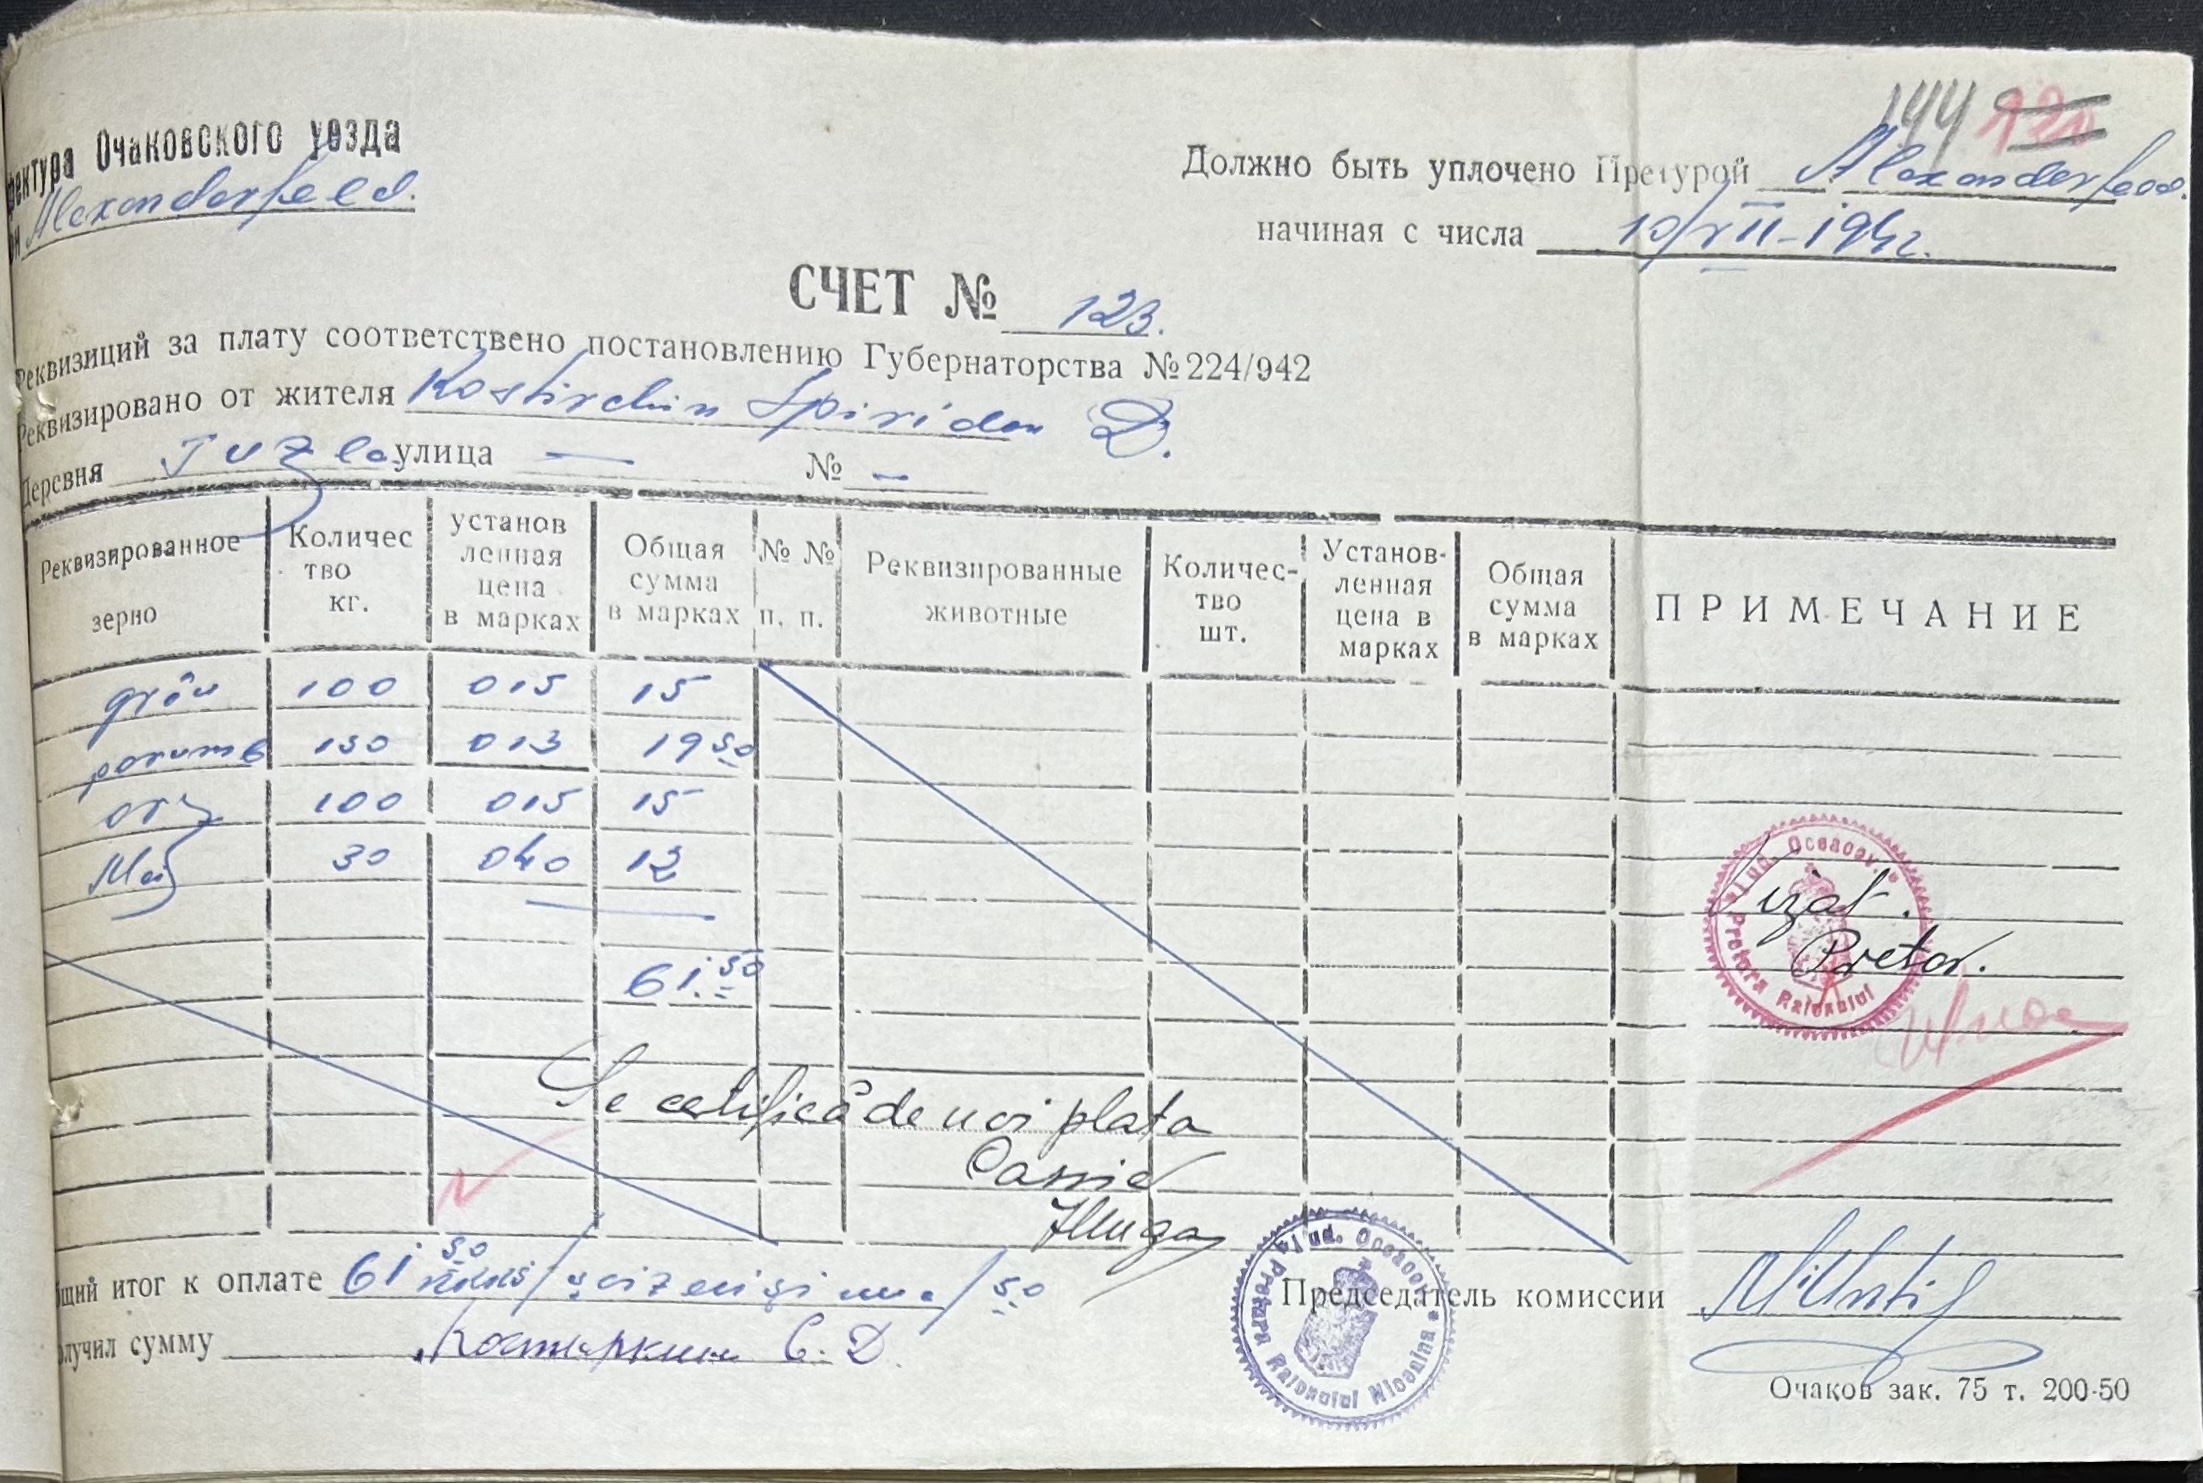 144 120
фектура Очаковского уезда
он Alexanderfeld.
Должно быть уплочено Претурой Alexanderfeld.
начиная с числа 10/VII-1942.
СЧЕТ № 123.
Реквизиций за плату соответствено постановлению Губернаторства № 224/942
Реквизировано от жителя Kostirchin Spiridon D.
Деревня Tuzla улица — № —
Реквизированное зерно Количес тво кг. установ ленная цена в марках Общая сумма в марках № № п. п. Реквизированные животные Количес- тво шт. Установ- ленная цена в марках Общая сумма в марках ПРИМЕЧАНИЕ
grâu 100 015 15
porumb 150 013 19 50
orz 100 015 15
Mei 30 040 12
61.50
Vizat.
Pretor.
Jud. Oceacov. Pretora Raionului
Se certifică de noi plata
Casier
Общий итог к оплате 61 50 / șaizeci și una / 50
Председатель комиссии
Получил сумму Костыркин С. Д.
Jud. Oceacov Pretora Raionului
Очаков зак. 75 т. 200-50